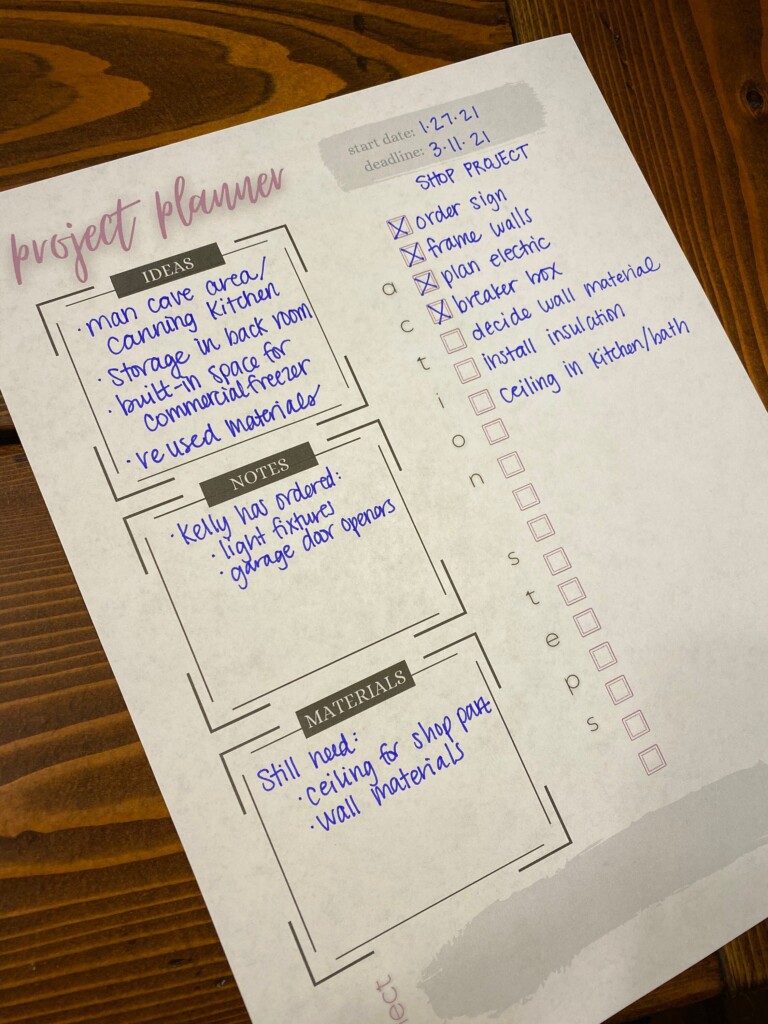 project planner
start date: 1·27·21
deadline: 3·11·21
SHOP PROJECT
order sign
frame walls
plan electric
breaker box
decide wall material
install insulation
ceiling in kitchen/bath
action steps
IDEAS
· man cave area/
canning kitchen
· storage in back room
· built-in space for
commercial freezer
· reused materials
NOTES
· Kelly has ordered:
· light fixtures
· garage door openers
MATERIALS
Still need:
· ceiling for shop part
· wall materials